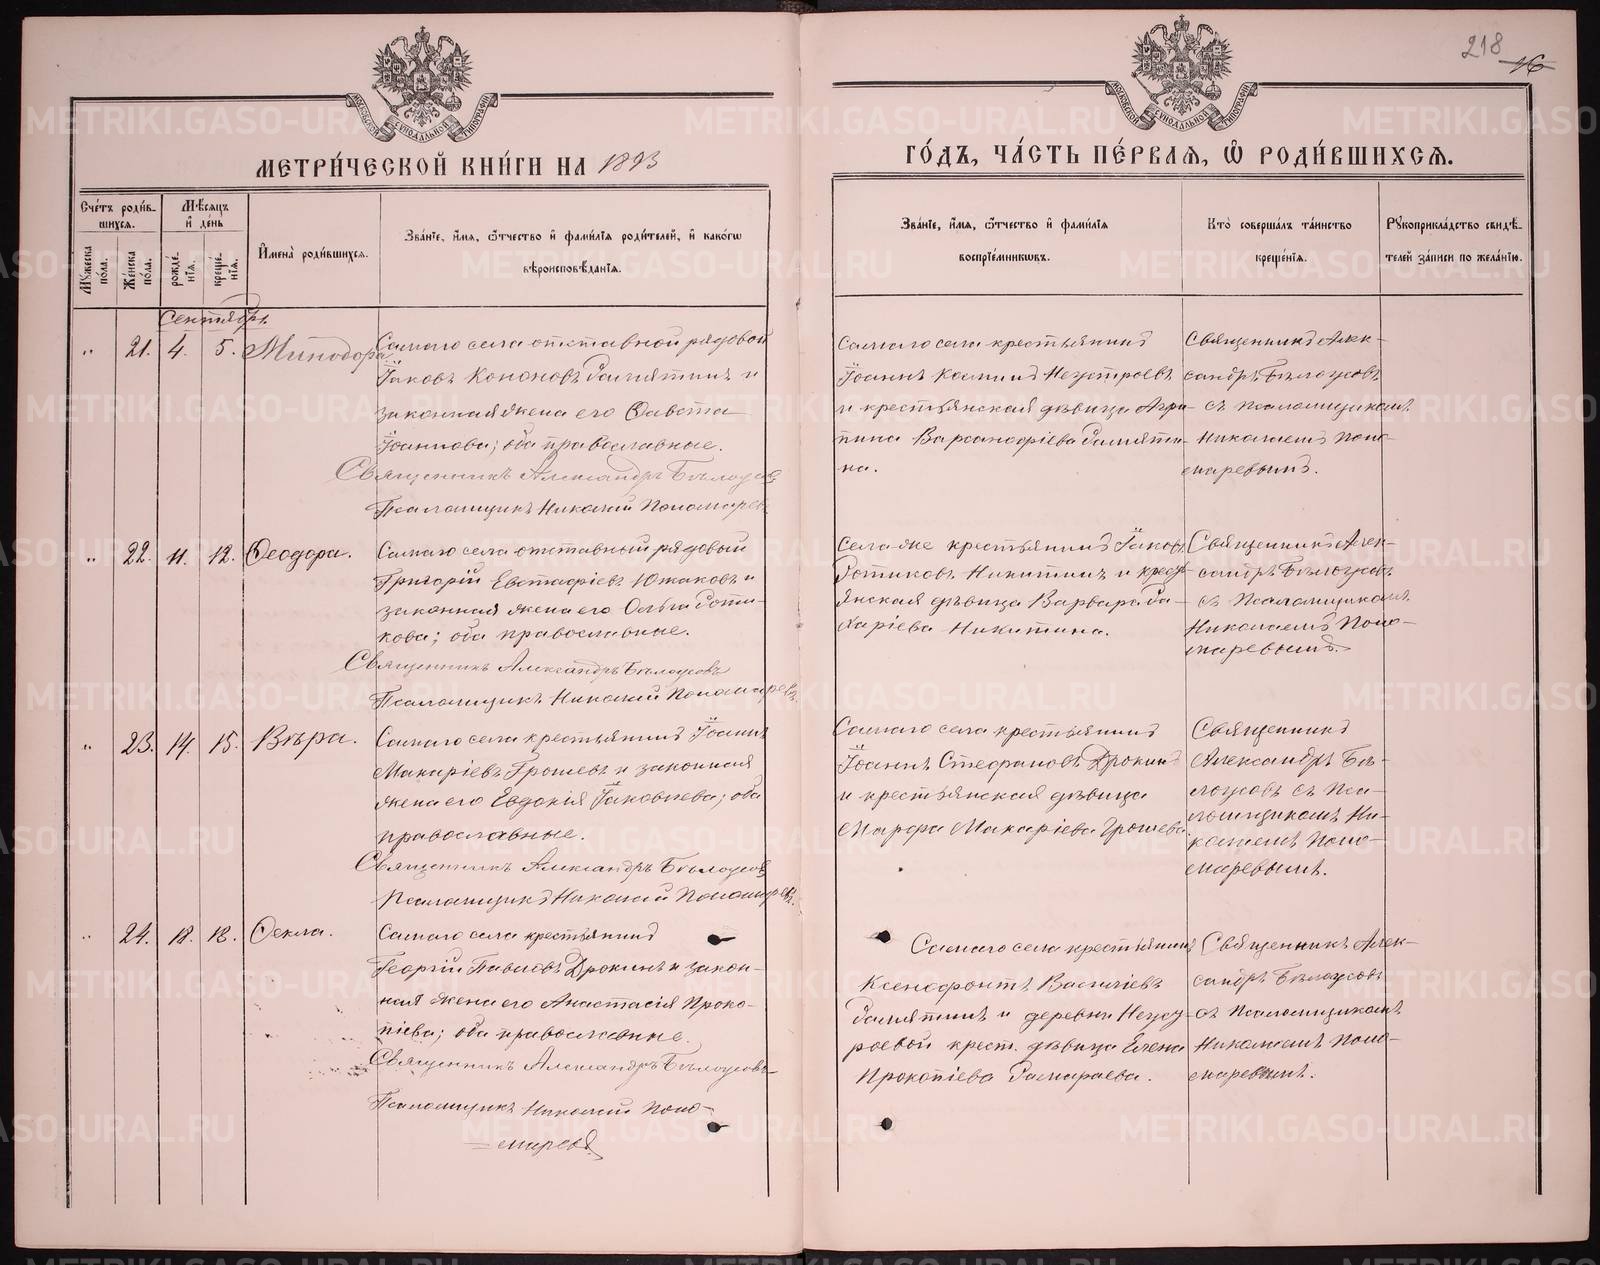 218
16
МОСКОВСКОЙ СѴНОДАЛЬНОЙ ТИПОГРАФІИ
МОСКОВСКОЙ СѴНОДАЛЬНОЙ ТИПОГРАФІИ
МЕТРИ́ЧЕСКОЙ КНИ́ГИ НА 1893
ГО́ДЪ, ЧА́СТЬ ПЕ́РВАЯ, Ѡ҆ РОДИ́ВШИХСЯ.
Сче́тъ роди́в-
шихся.
Мꙋжеска по́ла.
Же́нска по́ла.
Мѣ́сяцъ
и҆ де́нь
рожде́-
нїя.
креще́-
нїя.
И҆мена̀ роди́вшихся.
Зва́нїе, и҆́мя, ѻ҆́тчество и҆ фами́лїя роди́телей, и҆ како́гѡ
вѣроисповѣ́данїя.
Зва́нїе, и҆́мя, ѻ҆́тчество и҆ фами́лїя
воспрїе́мникѡвъ.
Кто̀ соверша́лъ та́инство
креще́нїя.
Рꙋкоприкла́дство свидѣ́-
телей за́писи по жела́нїю.
Сентябрь
" 21. 4. 5. Минодора
Самаго села отставной рядовой
Іаковъ Кононовъ Замятинъ и
законная жена его Ѳавста
Іоаннова; оба православные.
Священникъ Александръ Бѣлоусовъ
Псаломщикъ Николай Пономаревъ
Самаго села крестьянинъ
Іоаннъ Неустроевъ
и крестьянская дѣвица Агри-
пина Варсанофіева Замяти-
на.
Священникъ Алек-
сандръ Бѣлоусовъ
съ псаломщикомъ
Николаемъ Поно-
маревымъ.
" 22. 11. 12. Ѳеодора.
Самаго села отставный рядовый
Григорій Евстафіевъ Южаковъ и
законная жена его Ольга Фоти-
кова; оба православные.
Священникъ Александръ Бѣлоусовъ
Псаломщикъ Николай Пономаревъ
Села же крестьянинъ Іаковъ
Фотиковъ Никитинъ и кресть-
янская дѣвица Варвара За-
харіева Никитина.
Священникъ Алек-
сандръ Бѣлоусовъ
съ псаломщикомъ
Николаемъ Поно-
маревымъ.
" 23. 14. 15. Вѣра.
Самаго села крестьянинъ Іоаннъ
Макаріевъ Грошевъ и законная
жена его Евдокія Іаковлева; оба
православные.
Священникъ Александръ Бѣлоусовъ
Псаломщикъ Николай Пономаревъ.
Самаго села крестьянинъ
Іоаннъ Стефановъ Дрокинъ
и крестьянская дѣвица
Марѳа Макаріева Грошева.
Священникъ
Александръ Бѣ-
лоусовъ съ пса-
ломщикомъ Ни-
колаемъ Поно-
маревымъ.
" 24. 18. Ѳекла.
Самаго села крестьянинъ
Георгій Павловъ Дрокинъ и закон-
ная жена его Анастасія Проко-
піева; оба православные.
Священникъ Александръ Бѣлоусовъ
Псаломщикъ Николай Поно-
маревъ.
Самаго села крестьянинъ
Ксенофонтъ Василіевъ
Замятинъ и деревни Неуст-
роевой крест. дѣвица Елена
Прокопіева
Священникъ Алек-
сандръ Бѣлоусовъ
съ псаломщикомъ
Николаемъ Поно-
маревымъ.
METRIKI.GASO-URAL.RU